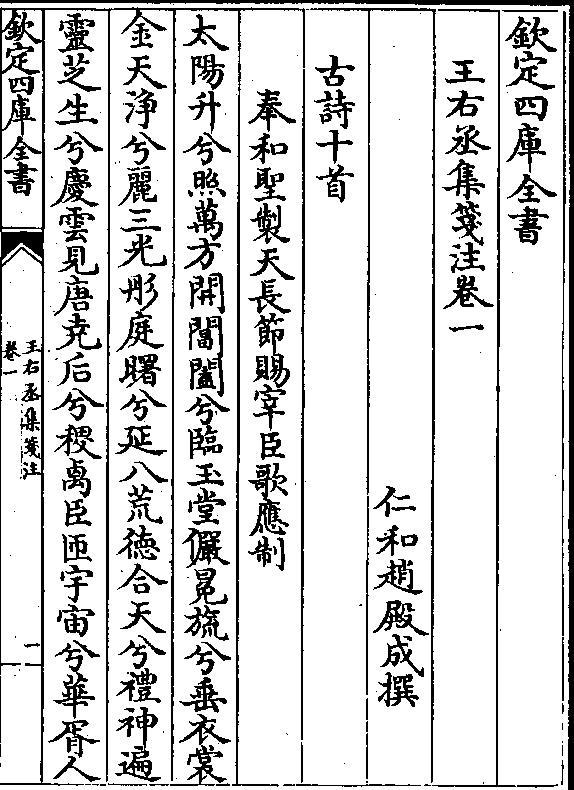 欽定四庫全書
王右丞集箋注卷一
仁和趙殿成撰
古詩十首
奉和聖製天長節賜宰臣歌應制
太陽升兮照萬方開閶闔兮臨玉堂儼冕旒兮垂衣裳
金天淨兮麗三光彤庭曙兮延八荒德合天兮禮神遍
靈芝生兮慶雲見唐堯后兮稷卨臣匝宇宙兮華胥人
欽定四庫全書
王右丞集箋注
卷一
一